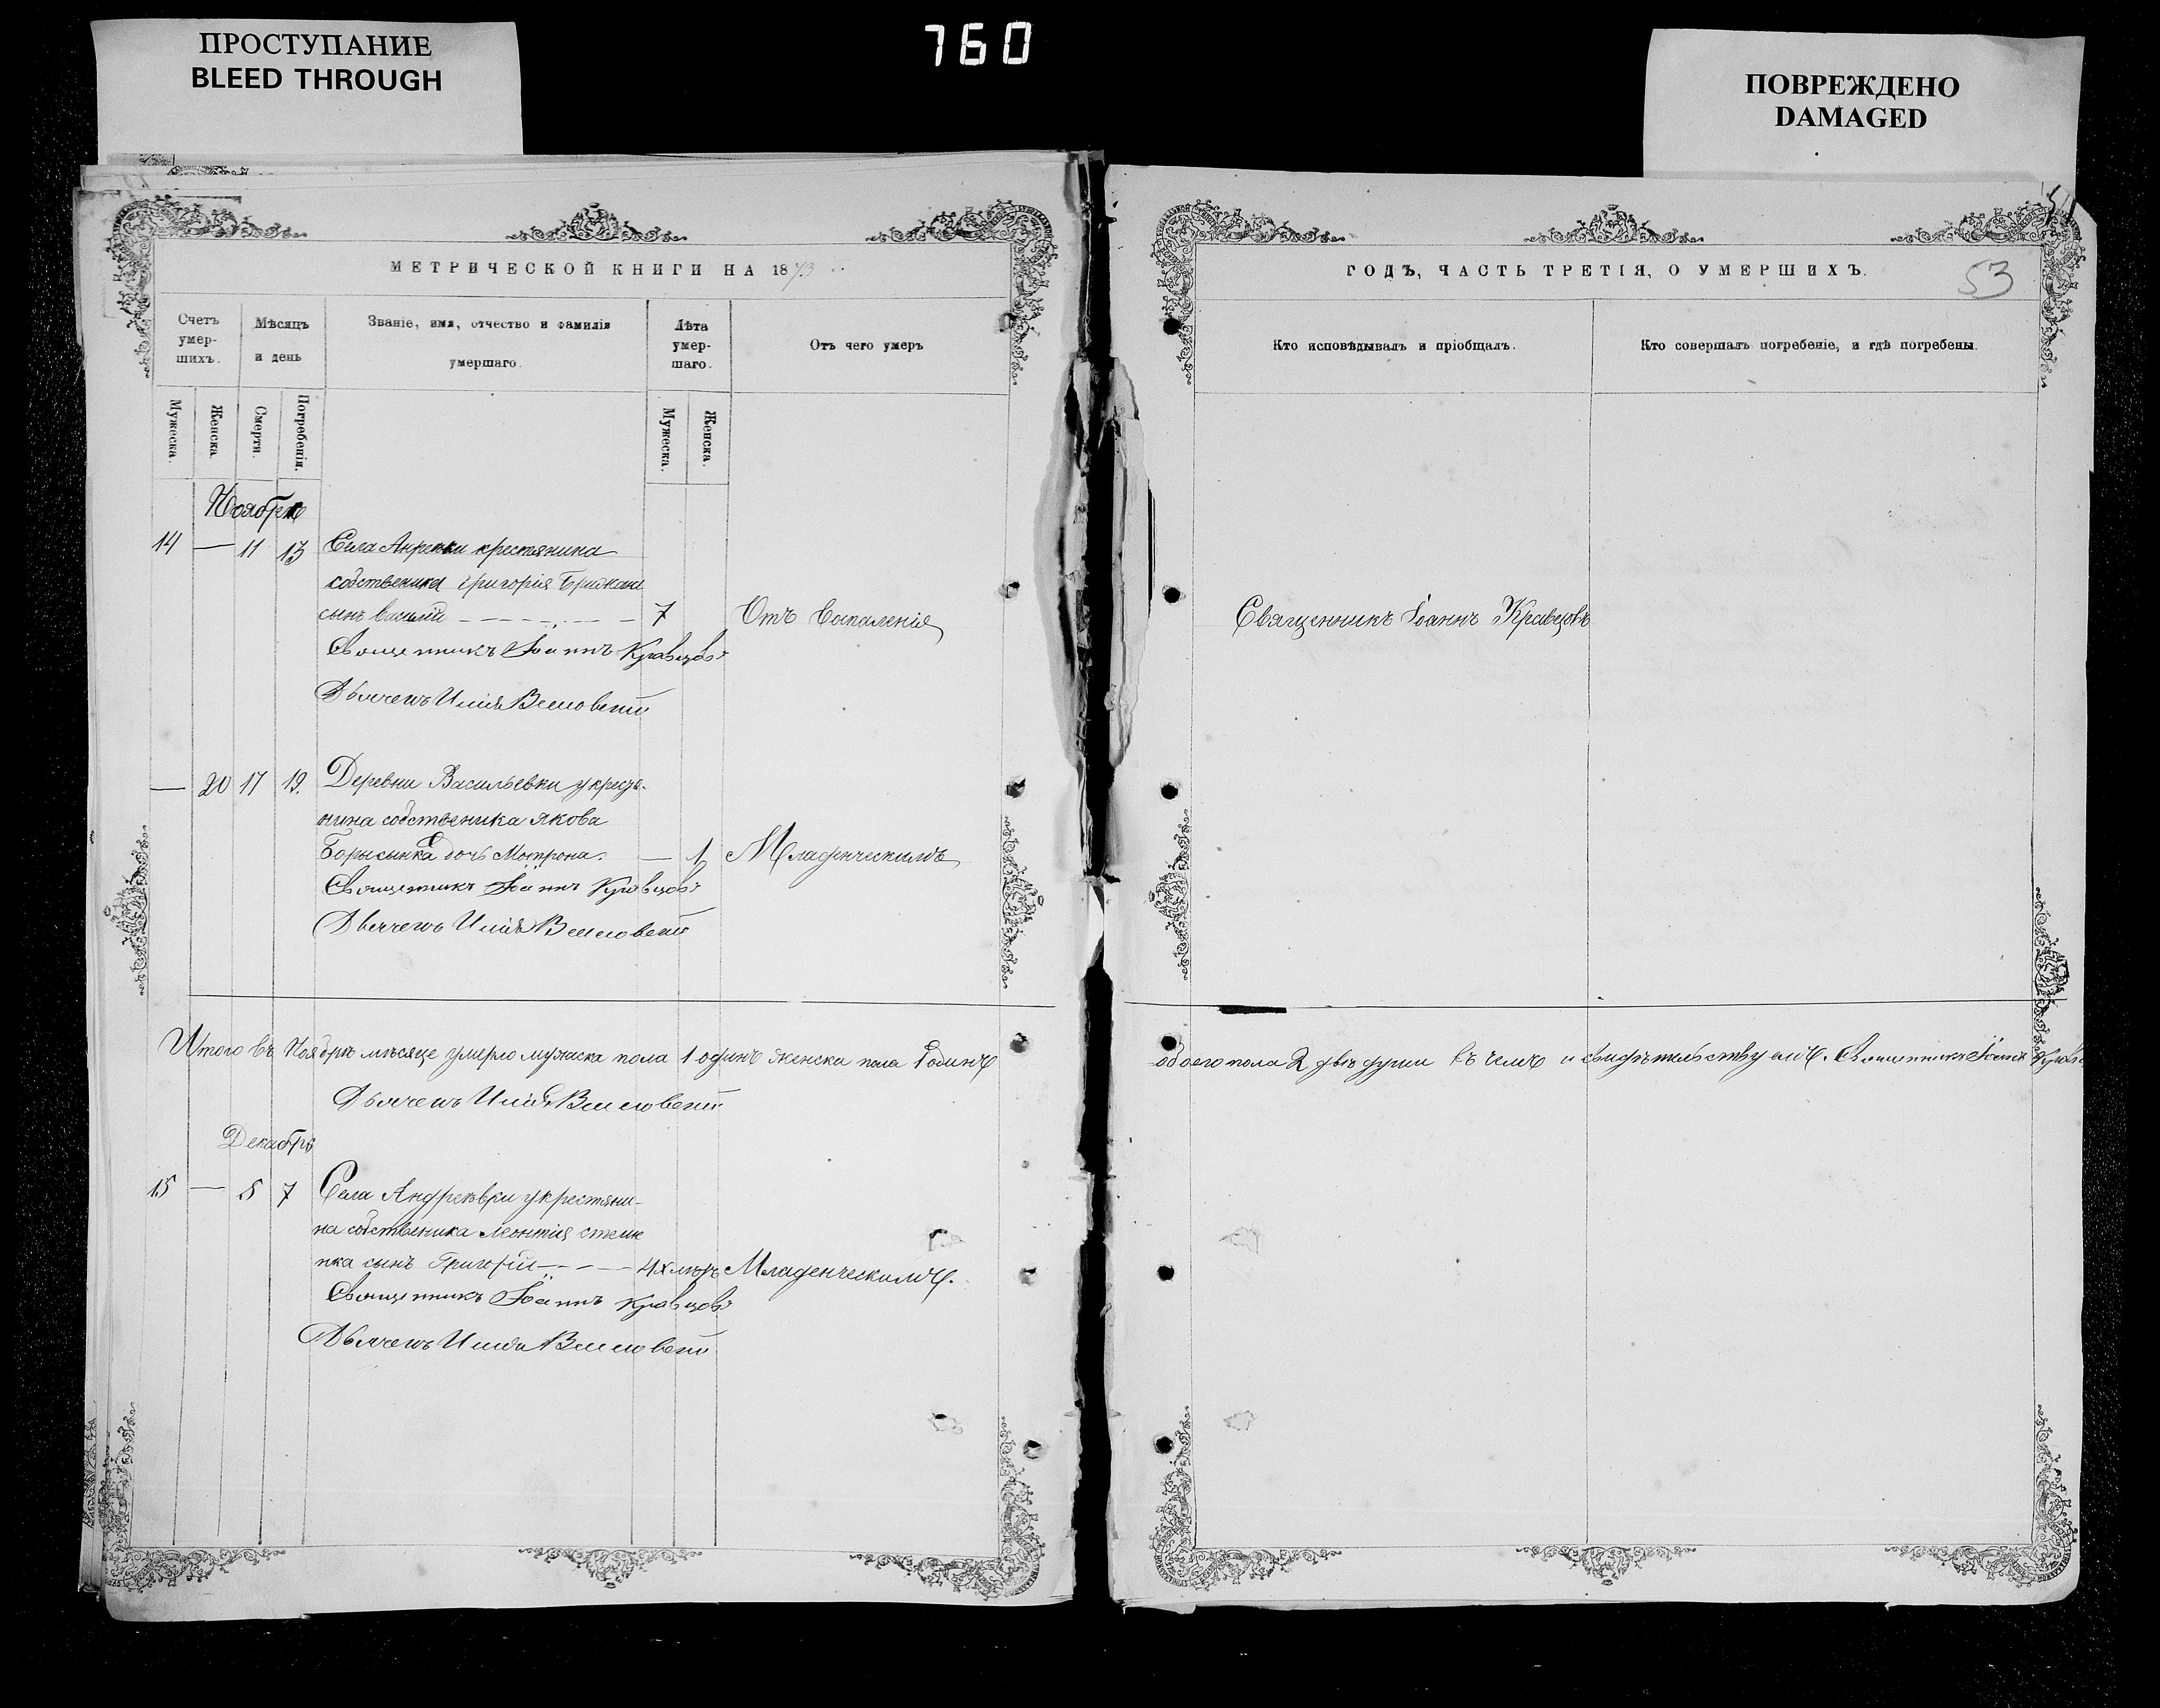 ПРОСТУПАНИЕ
BLEED THROUGH
760
ПОВРЕЖДЕНО
DAMAGED
МЕТРИЧЕСКОЙ КНИГИ НА 1873
Счетъ умер-шихъ.
Мѣсяцъ и день
Званіе, имя, отчество и фамилія умершаго.
Лѣта умер-шаго.
Отъ чего умеръ
Мужеска.
Женска.
Смерти.
Погребенія.
Мужеска.
Женска.
Ноябрь
14 — 11 13 Села крестянина
собственика Григорія
сынъ 7 Отъ Воспаленія
Священникъ Іоаннъ Кравцовъ
Дьячекъ Илія
— 20 17 19. Деревни Васильевки у кресть-
нина собственика Якова
Борысенка дочь Мотрона. — 1 Младенческимъ
Священникъ Іоаннъ Кравцовъ
Дьячекъ Илія
Итого въ Ноябрѣ мѣсяце умерло мужеска пола 1 одинъ женска пола 1 одинъ
Дьячекъ Илія
Декабрь
15 — 5 7 Села Андреевки у крестяни-
на собственика Леонтия
нка сынъ Григорій — 4х Младенческимъ.
Священникъ Іоаннъ Кравцовъ
Дьячекъ Илія
ГОДЪ, ЧАСТЬ ТРЕТІЯ, О УМЕРШИХЪ.
53
Кто исповѣдывалъ и пріобщалъ.
Кто совершалъ погребеніе, и гдѣ погребены.
Священникъ Іоаннъ Кравцовъ
обоего пола 2 двѣ души въ чемъ и свидѣтельствуемъ. Священникъ Іоаннъ